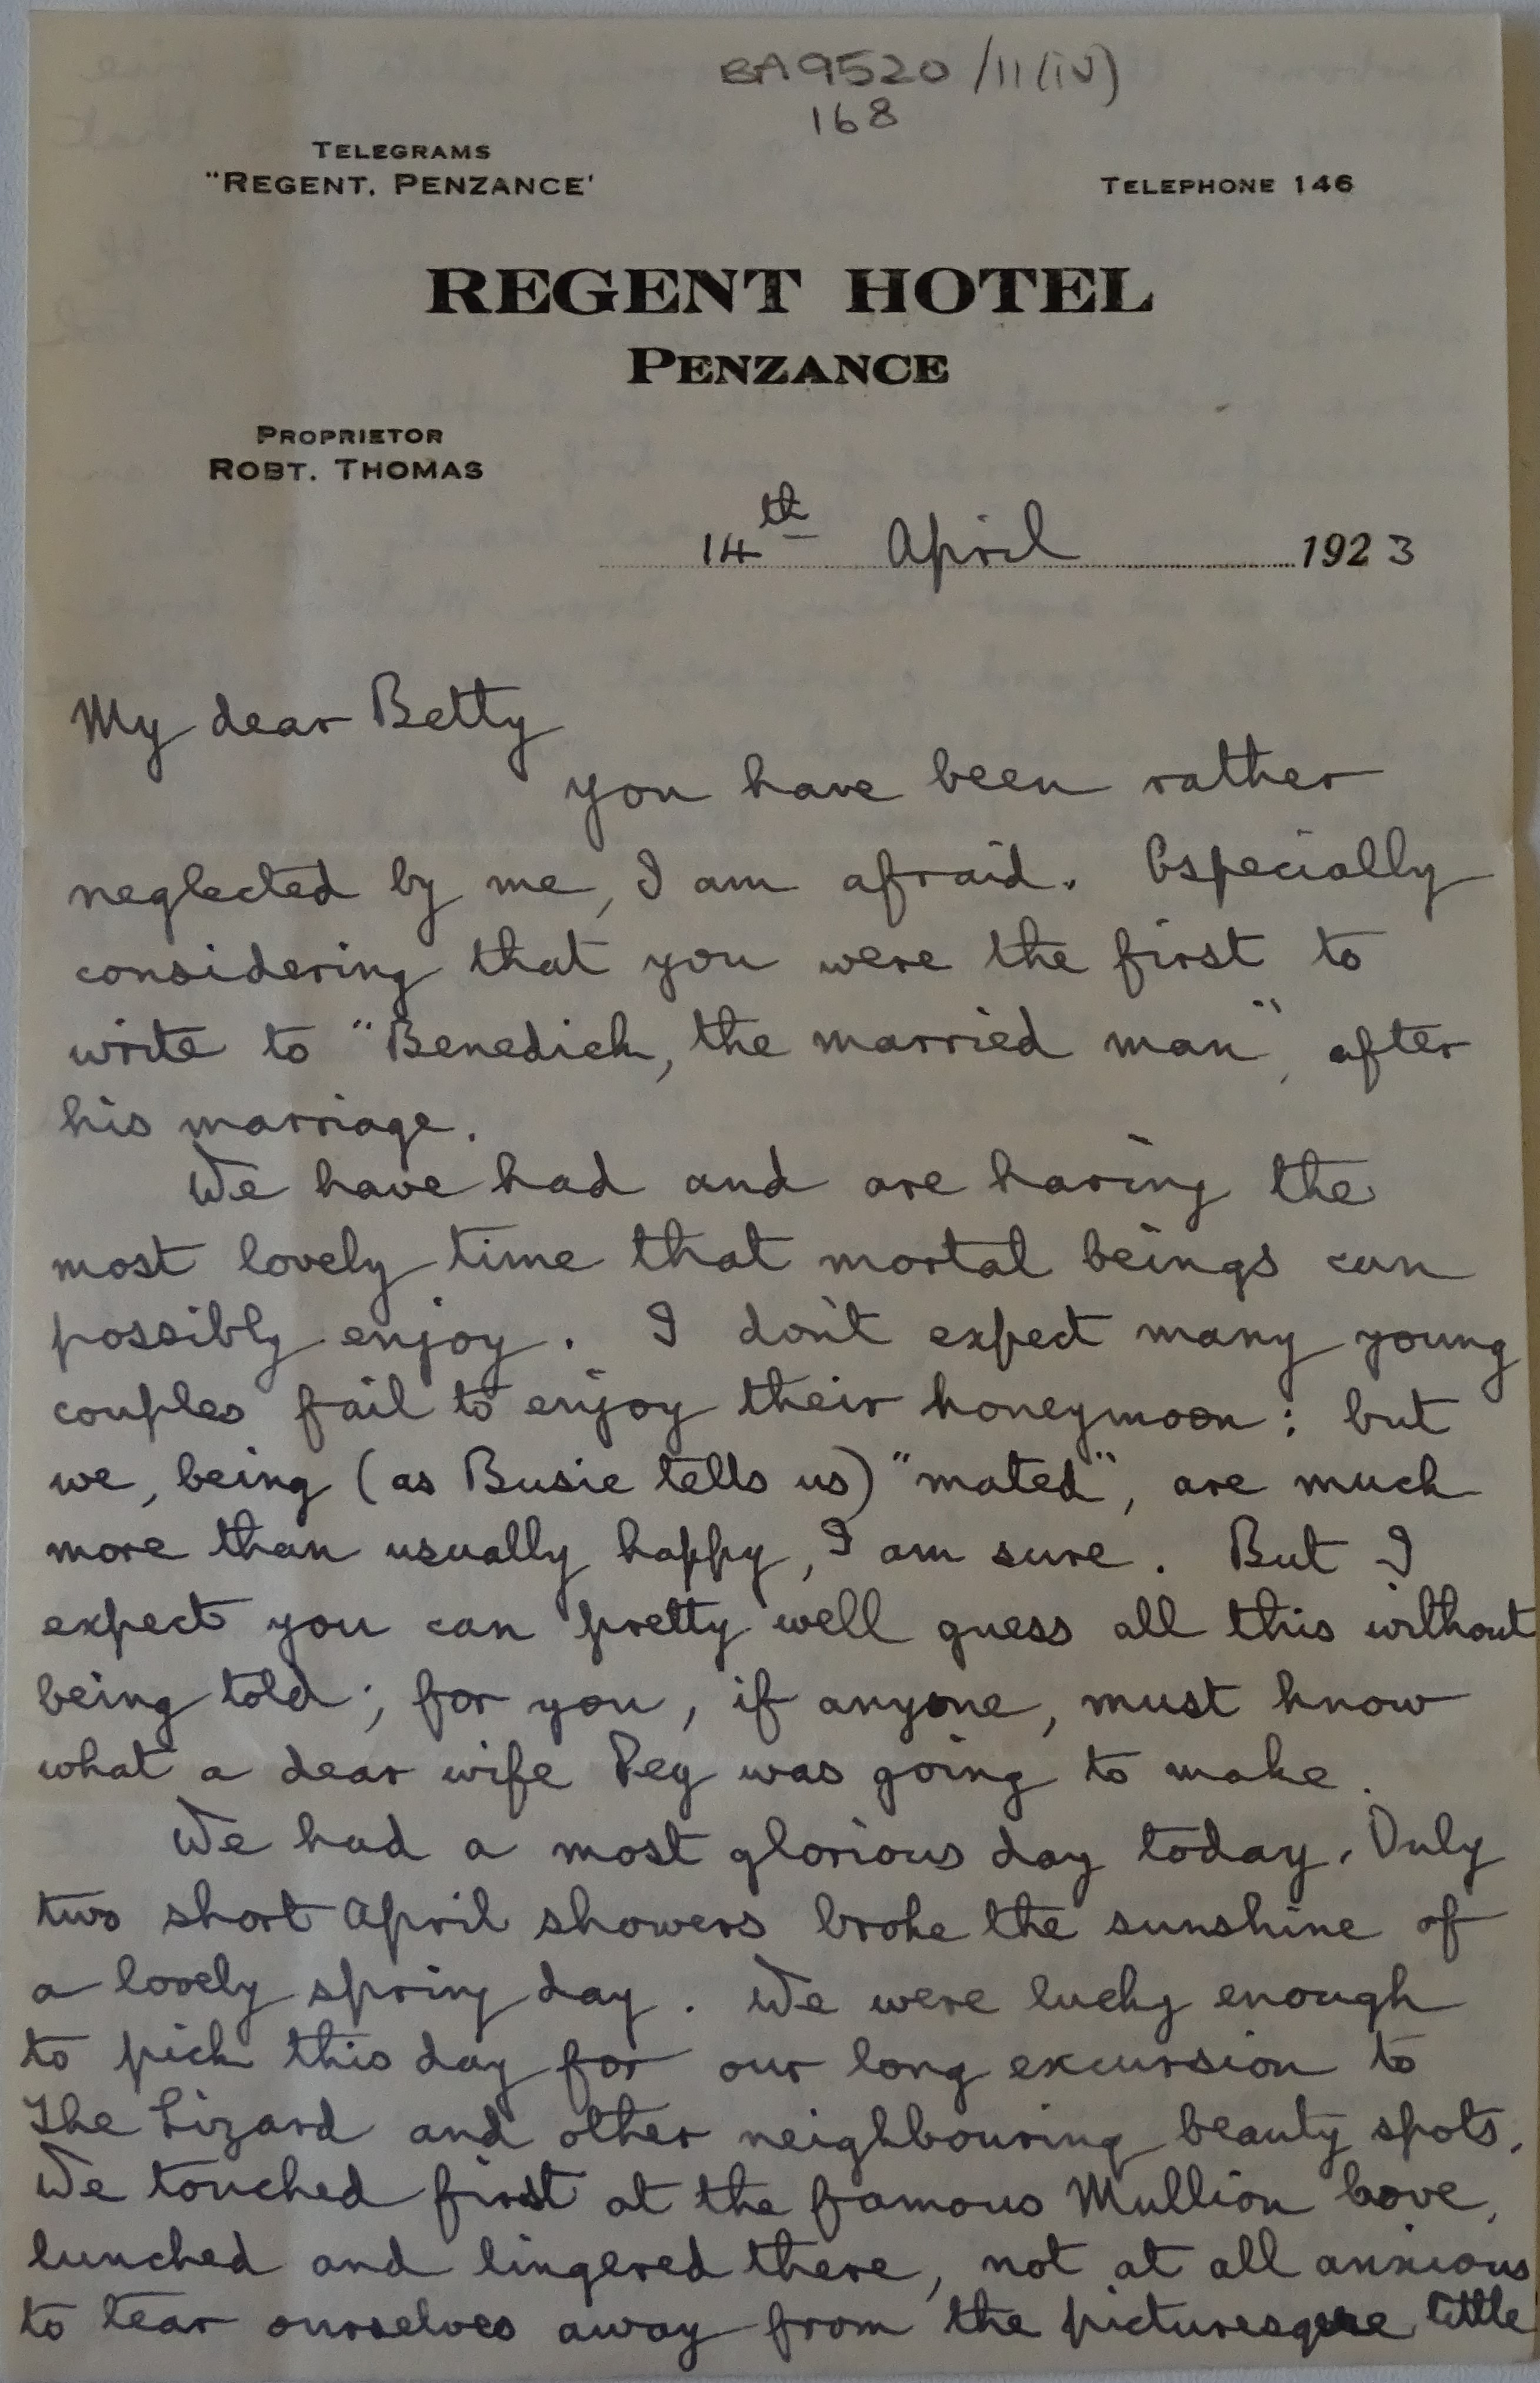 BA9520/11(iv)
168
TELEGRAMS
"REGENT, PENZANCE'
TELEPHONE 146
REGENT HOTEL
PENZANCE
PROPRIETOR
ROBT. THOMAS
14th April 1923
My dear Betty
you have been rather
neglected by me, I am afraid. Especially
considering that you were the first to
write to "Benedick, the married man", after
his marriage.
We have had and are having the
most lovely time that mortal beings can
possibly enjoy. I don't expect many young
couples fail to enjoy their honeymoon: but
we, being (as Busie tells us) "mated", are much
more than usually happy, I am sure. But I
expect you can pretty well guess all this without
being told; for you, if anyone, must know
what a dear wife Peg was going to make.
We had a most glorious day today. Only
two short April showers broke the sunshine of
a lovely spring day. We were lucky enough
to pick this day for our long excursion to
The Lizard and other neighbouring beauty spots.
We touched first at the famous Mullion Cove,
lunched and lingered there, not at all anxious
to tear ourselves away from the picturesque little